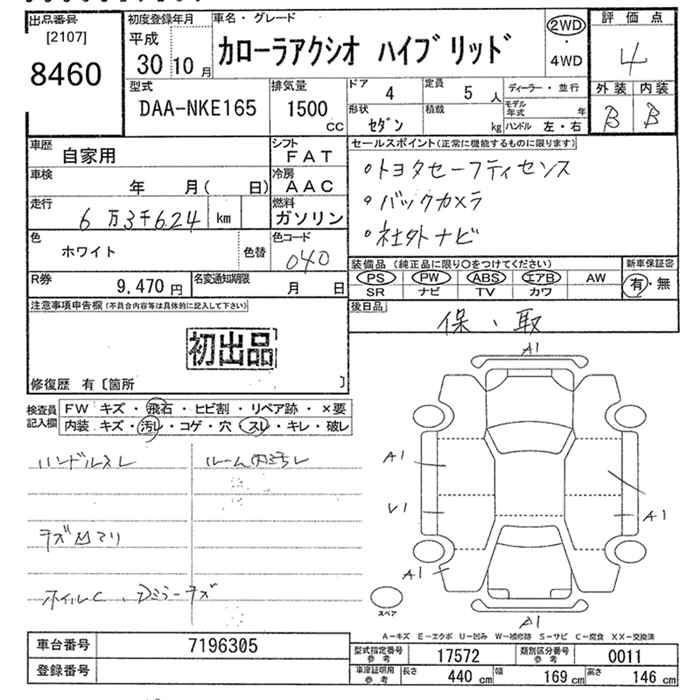 出品番号
[2107]
8460
初度登録年月
平成
30 10 月
車名・グレード
カローラアクシオ ハイブリッド
2WD
・
4WD
評価点
4
外装 内装
B B
型式
DAA-NKE165
排気量
1500
CC
ドア
4
定員
5 人
形状
セダン
積載
kg
ディーラー・並行
モデル年式 年
ハンドル 左・右
車歴
自家用
シフト
FAT
車検
年 月( 日)
冷房
AAC
走行
6万3千624 km
燃料
ガソリン
色
ホワイト
色替
色コード
040
R券
9,470 円
名変通知期限
月 日
セールスポイント(正常に機能するものに限ります)
・トヨタセーフティセンス
・バックカメラ
・社外ナビ
装備品(純正品に限り○をつけてください)
PS PW ABS エアB AW
SR ナビ TV カワ
新車保証書
有・無
後日品
保、取
注意事項申告欄(不具合内容等は具体的に記入して下さい)
初出品
修復歴 有〔箇所 〕
検査員記入欄
FW キズ・飛石・ヒビ割・リペア跡・×要
内装 キズ・汚レ・コゲ・穴・スレ・キレ・破レ
ハンドルスレ
ルーム内汚レ
キズ凹アリ
ホイルC、Dミラーキズ
A1
A1
V1
A1
A1
A1
スペア
A-キズ E-エクボ U-凹み W-補修跡 S-サビ C-腐食 XX-交換済
車台番号
7196305
登録番号
型式指定番号 参考
17572
類別区分番号 参考
0011
車庫証明用 参考
長さ 440 cm 幅 169 cm 高さ 146 cm